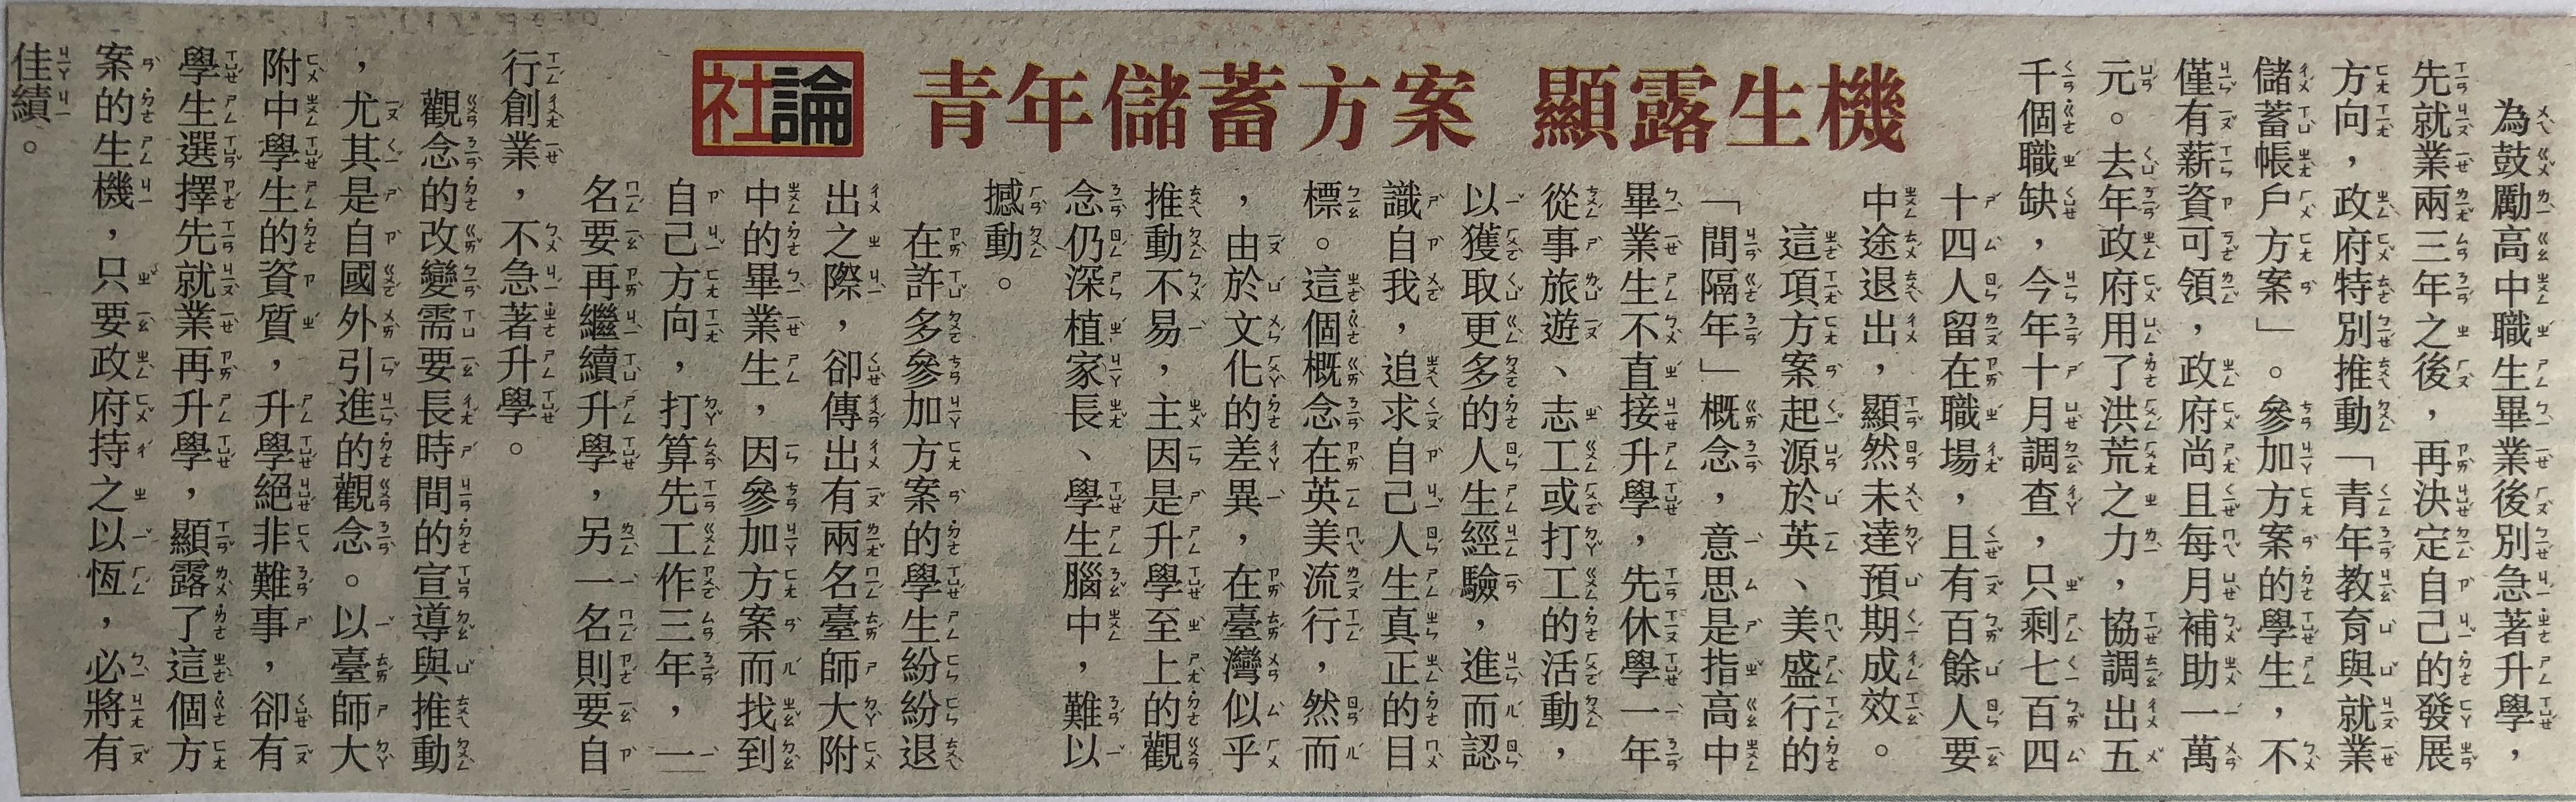 社論
青年儲蓄方案 顯露生機
為鼓勵高中職生畢業後別急著升學，
先就業兩三年之後，再決定自己的發展
方向，政府特別推動「青年教育與就業
儲蓄帳戶方案」。參加方案的學生，不
僅有薪資可領，政府尚且每月補助一萬
元。去年政府用了洪荒之力，協調出五
千個職缺，今年十月調查，只剩七百四
十四人留在職場，且有百餘人要
中途退出，顯然未達預期成效。
這項方案起源於英、美盛行的
「間隔年」概念，意思是指高中
畢業生不直接升學，先休學一年
從事旅遊、志工或打工的活動，
以獲取更多的人生經驗，進而認
識自我，追求自己人生真正的目
標。這個概念在英美流行，然而
，由於文化的差異，在臺灣似乎
推動不易，主因是升學至上的觀
念仍深植家長、學生腦中，難以
撼動。
在許多參加方案的學生紛紛退
出之際，卻傳出有兩名臺師大附
中的畢業生，因參加方案而找到
自己方向，打算先工作三年，一
名要再繼續升學，另一名則要自
行創業，不急著升學。
觀念的改變需要長時間的宣導與推動
，尤其是自國外引進的觀念。以臺師大
附中學生的資質，升學絕非難事，卻有
學生選擇先就業再升學，顯露了這個方
案的生機，只要政府持之以恆，必將有
佳績。